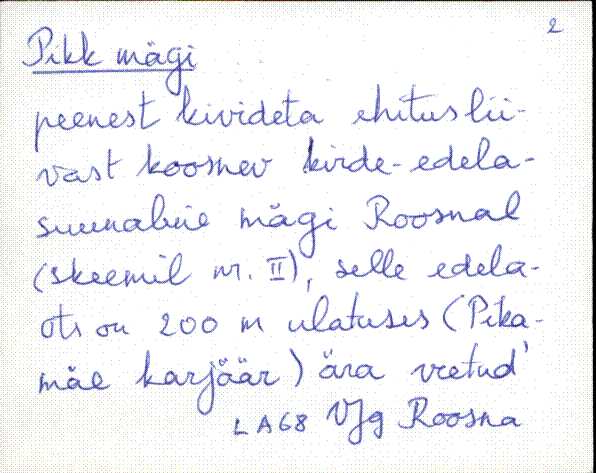 2
Pikk mägi
peenest kivideta ehituslii-
vast koosnev kirde-edela-
suunaline mägi Roosnal
(skeemil nr. II), selle edela-
ots on 200 m ulatuses (Pika-
mäe karjäär) ära veetud'
LA68 VJg Roosna